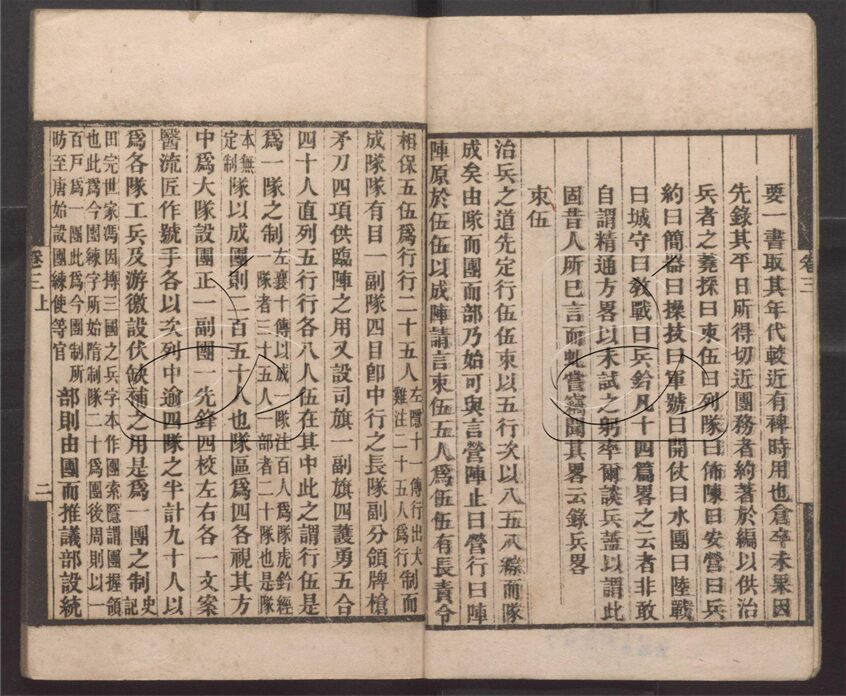 卷三
要一書取其年代較近有裨時用也倉卒未果因
先錄其平日所得切近團務者約著於編以供治
兵者之蒭採曰束伍曰列隊曰佈陳曰安營曰兵
約曰簡器曰操技曰軍號曰開仗曰水團曰陸戰
曰城守曰敎戰曰兵鈐凡十四篇畧之云者非敢
自謂精通方畧以未試之躬率爾談兵蓋以謂此
固昔人所已言而輒嘗竊聞其畧云錄兵畧
束伍
治兵之道先定行伍伍束以五行次以八五八綜而隊
成矣由隊而團而部乃始可與言營陣止曰營行曰陣
陣原於伍伍以成陣請言束伍五人爲伍伍有長責令
相保五伍爲行行二十五人左隱十一傳行出犬雞注二十五人爲行制而
成隊隊有目一副隊四目卽中行之長隊副分領牌槍
矛刀四項供臨陣之用又設司旗一副旗四護勇五合
四十人直列五行行各八人伍在其中此之謂行伍是
爲一隊之制左襄十傳以成一隊注百人爲隊虎鈐經隊者三十五人一部者二十隊也是隊
本無定制隊以成團則二百五十人也隊區爲四各視其方
中爲大隊設團正一副團一先鋒四校左右各一文案
醫流匠作號手各以次列中逾四隊之半計九十人以
爲各隊工兵及游徼設伏缺補之用是爲一團之制史記
田完世家馮因摶三國之兵字本作團索隱謂團握領
也此爲今團練字所始隋制隊二十爲團後周則以一
百戶爲一團此爲今團制所昉至唐始設團練使等官部則由團而推議部設統
卷三上
二